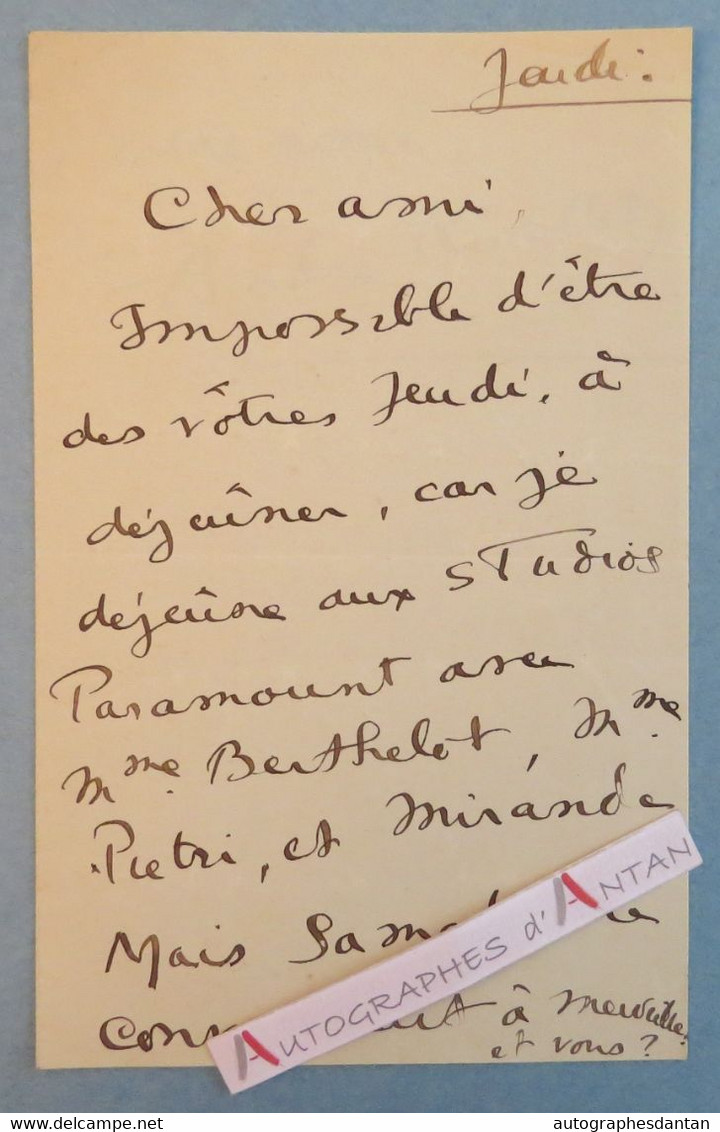 Jeudi.
Cher ami,
Impossible d'être
des vôtres Jeudi, à
déjeûner, car je
déjeûne aux studios
Paramount avec
Mme Berthelot, Mme
Pietri, et Mirande
Mais Samedi
à merveille.
et vous?
AUTOGRAPHES d'ANTAN
www.delcampe.net
autographesdantan